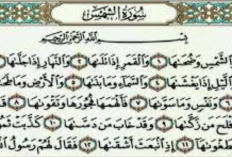 سُورَةُ الشَّمْسِ
بِسْمِ اللَّهِ الرَّحْمَٰنِ الرَّحِيمِ
وَالشَّمْسِ وَضُحَىٰهَا ١ وَالْقَمَرِ إِذَا تَلَىٰهَا ٢ وَالنَّهَارِ إِذَا جَلَّىٰهَا ٣
وَالَّيْلِ إِذَا يَغْشَىٰهَا ٤ وَالسَّمَاءِ وَمَا بَنَىٰهَا ٥ وَالْأَرْضِ وَمَا طَحَىٰهَا
٦ وَنَفْسٍ وَمَا سَوَّىٰهَا ٧ فَأَلْهَمَهَا فُجُورَهَا وَتَقْوَىٰهَا ٨
أَفْلَحَ مَن زَكَّىٰهَا ٩ وَقَدْ خَابَ مَن دَسَّىٰهَا ١٠ كَذَّبَتْ ثَمُودُ
بِطَغْوَىٰهَا ١١ إِذِ انبَعَثَ أَشْقَىٰهَا ١٢ فَقَالَ لَهُمْ رَسُولُ